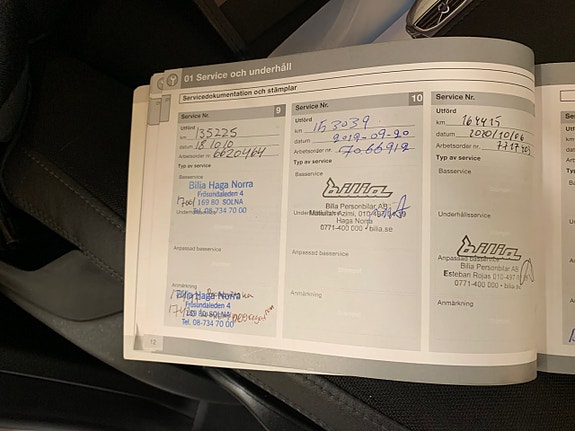 01 Service och underhåll
Servicedokumentation och stämplar
Service Nr. 9
Utförd
km 135225
datum 181010
Arbetsorder nr. 6620464
Typ av service
Basservice
Bilia Haga Norra
Frösundaleden 4
169 80 SOLNA
Tel. 08-734 70 00
Anpassad basservice
Anmärkning
Bilia Haga Norra
Frösundaleden 4
169 80 SOLNA
Tel. 08-734 70 00
12
Service Nr. 10
Utförd
km 153039
datum 2019-09-20
Arbetsorder nr. 7066912
Typ av service
Basservice
bilia
Bilia Personbilar AB
Haga Norra
0771-400 000 • bilia.se
Anpassad basservice
Anmärkning
Service Nr.
Utförd
km 164415
datum 2020/10/06
Arbetsorder nr.
Typ av service
Basservice
Underhållsservice
bilia
Anpassad basservice
Bilia Personbilar AB
Esteban Rojas
0771-400 000 • bilia.se
Anmärkning